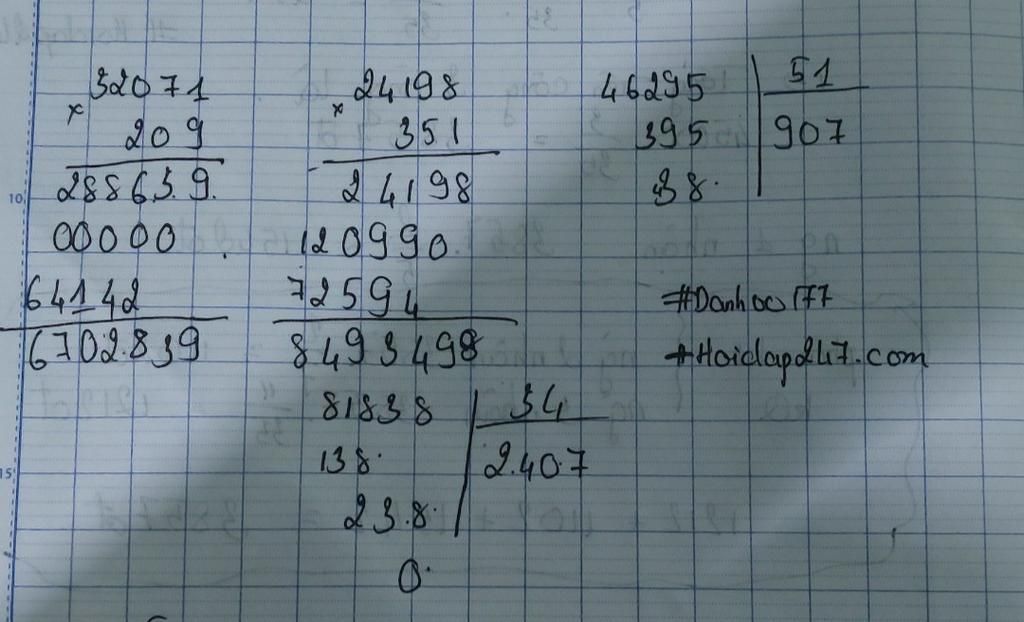 32071
× 209
28863.9.
00000.
64142
6702.839
24198
× 351
24198
120990
72594
8493498
46295 51
395 907
38.
#Danhoc177
#Hoidap247.com
81838 34
138. 2.40.7
23.8.
0.